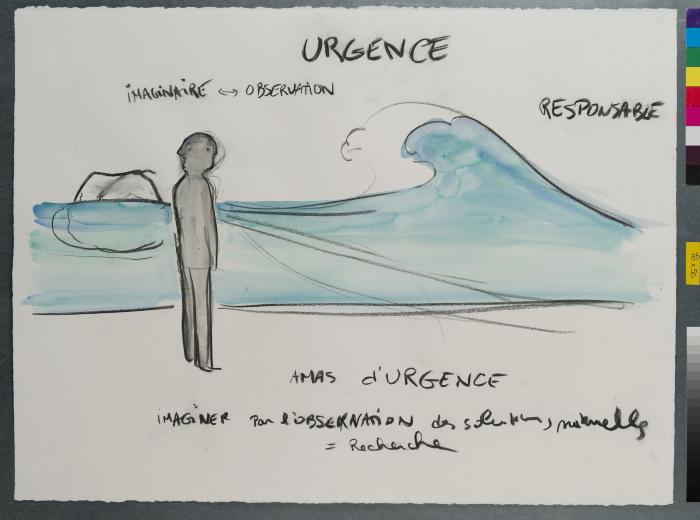 URGENCE
IMAGINAIRE ↔ OBSERVATION
RESPONSABLE
AMAS d'URGENCE
IMAGINER Par l'OBSERVATION des solutions naturelles
= Recherche